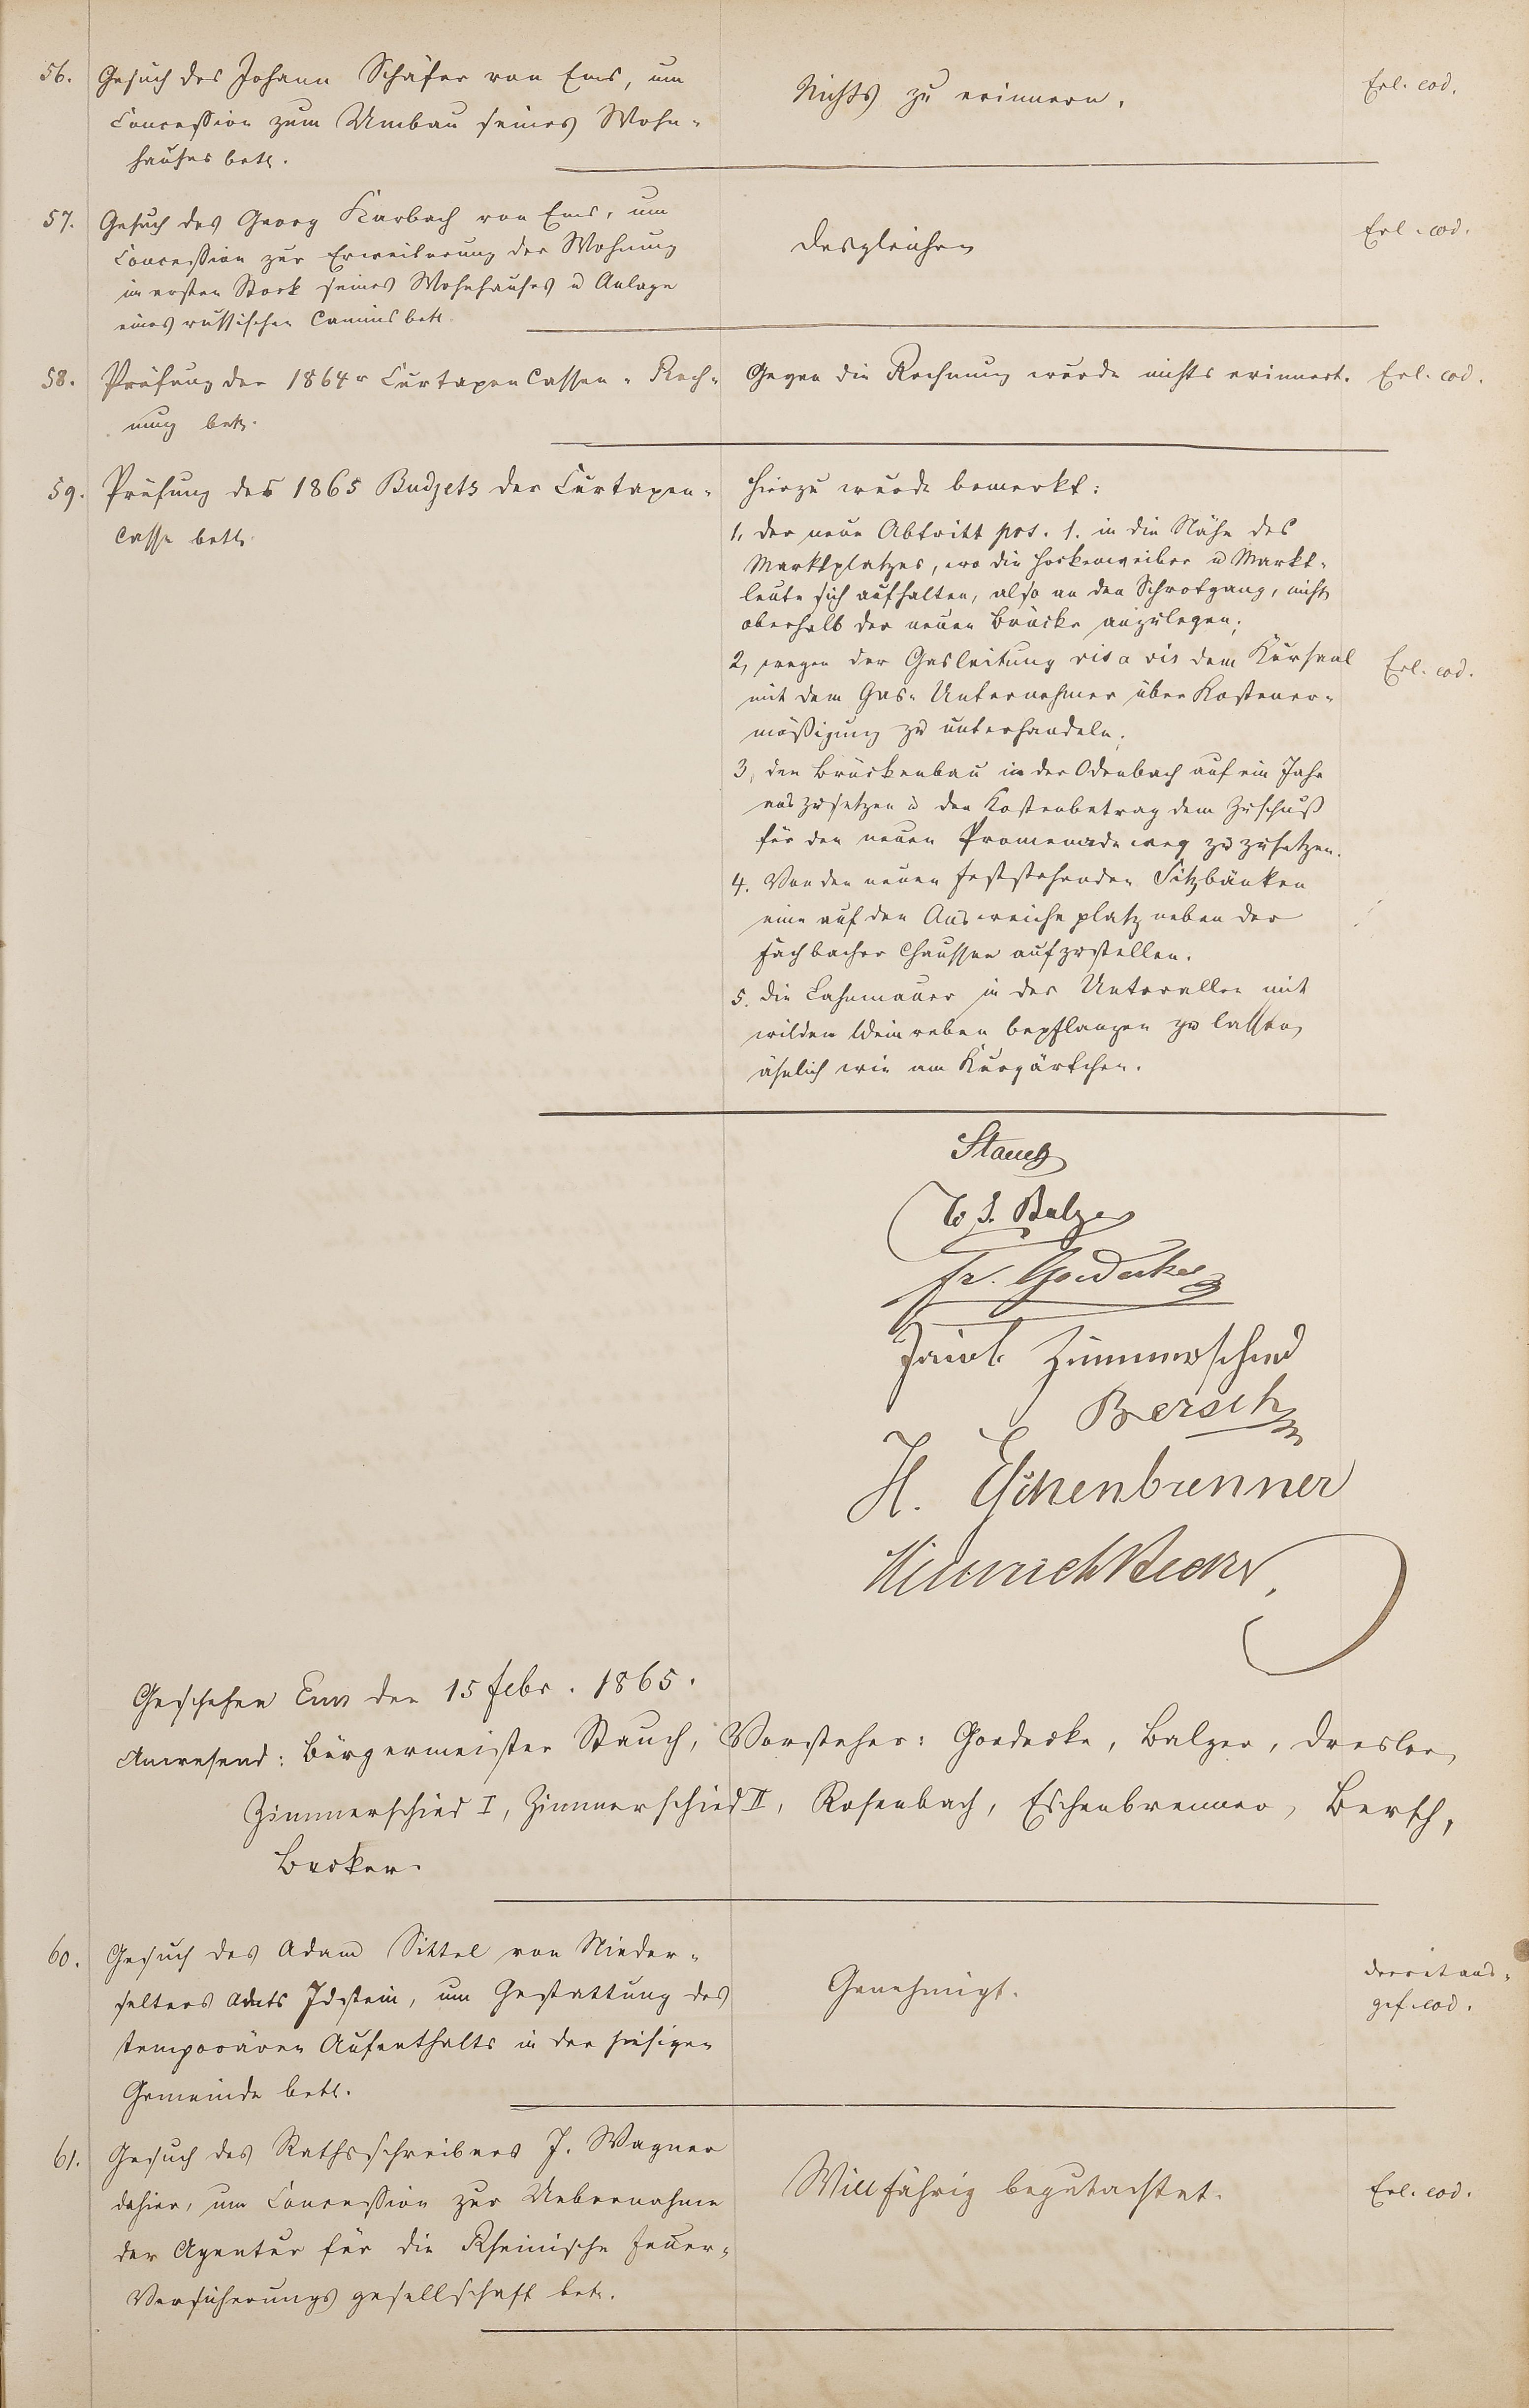 56. Gesuch des Johann Schäfer von Ems, um
Concession zum Umbau seines Wohn-
hauses betr.
Nichts zu erinnern.
Erl. eod.
57. Gesuch des Georg Karbach von Ems, um
Concession zur Erweiterung der Wohnung
im ersten Stock seines Wohnhauses u Anlage
eines russischen Camins betr.
Desgleichen
Erl. eod.
58. Prüfung der 1864r CurtaxenCassen-Rech-
nung betr.
Gegen die Rechnung wurde nichts erinnert.
Erl. eod.
59. Prüfung des 1865 Budjets der Curtaxen-
Casse betr.
Hierzu wurde bemerkt:
1, der neue Abtritt pos. 1. in die Nähe des
Marktplatzes, wo die Hockenweiber u Markt-
leute sich aufhalten, also an den Schrotgang, nicht
oberhalb der neuen Brücke anzulegen;
2, wegen der Gasleitung vis a vis dem Kursaal
mit dem Gas-Unternehmer über Kostener-
mäßigung zu unterhandeln;
Erl. eod.
3, den Brückenbau in der Odenbach auf ein Jahr
auszusetzen u den Kostenbetrag dem Zuschuß
für den neuen Promenadeweg zuzusetzen.
4. Von den neuen feststehenden Sitzbänken
eine auf den Ausweicheplatz neben der
Fachbacher Chaussee aufzustellen.
5. die Lahnmauer in der Unterallee mit
wilden Weinreben bepflanzen zu lassen,
ähnlich wie am Kurgärtchen.
Stauch
W. J. Balzer
Fr. Goedecke
Jacob Zimmerschied
Bersch
H. Eschenbrenner
Heinrich Becker
Geschehen Ems den 15 Febr. 1865.
Anwesend: Bürgermeister Stauch, Vorsteher: Goedecke, Balzer, Dresler,
Zimmerschied I, Zimmerschied II, Rosenbach, Eschenbrenner, Bersch,
Becker.
60. Gesuch des Adam Sittel von Nieder-
selters Amts Idstein, um Gestattung des
temporären Aufenthalts in der hiesigen
Gemeinde betr.
Genehmigt.
Decret aus-
gef. eod.
61. Gesuch des Rathsschreibers J. Wagner
dahier, um Concession zur Uebernahme
der Agentur für die Rheinische Feuer-
Versicherungsgesellschaft betr.
Willfährig begutachtet.
Erl. eod.